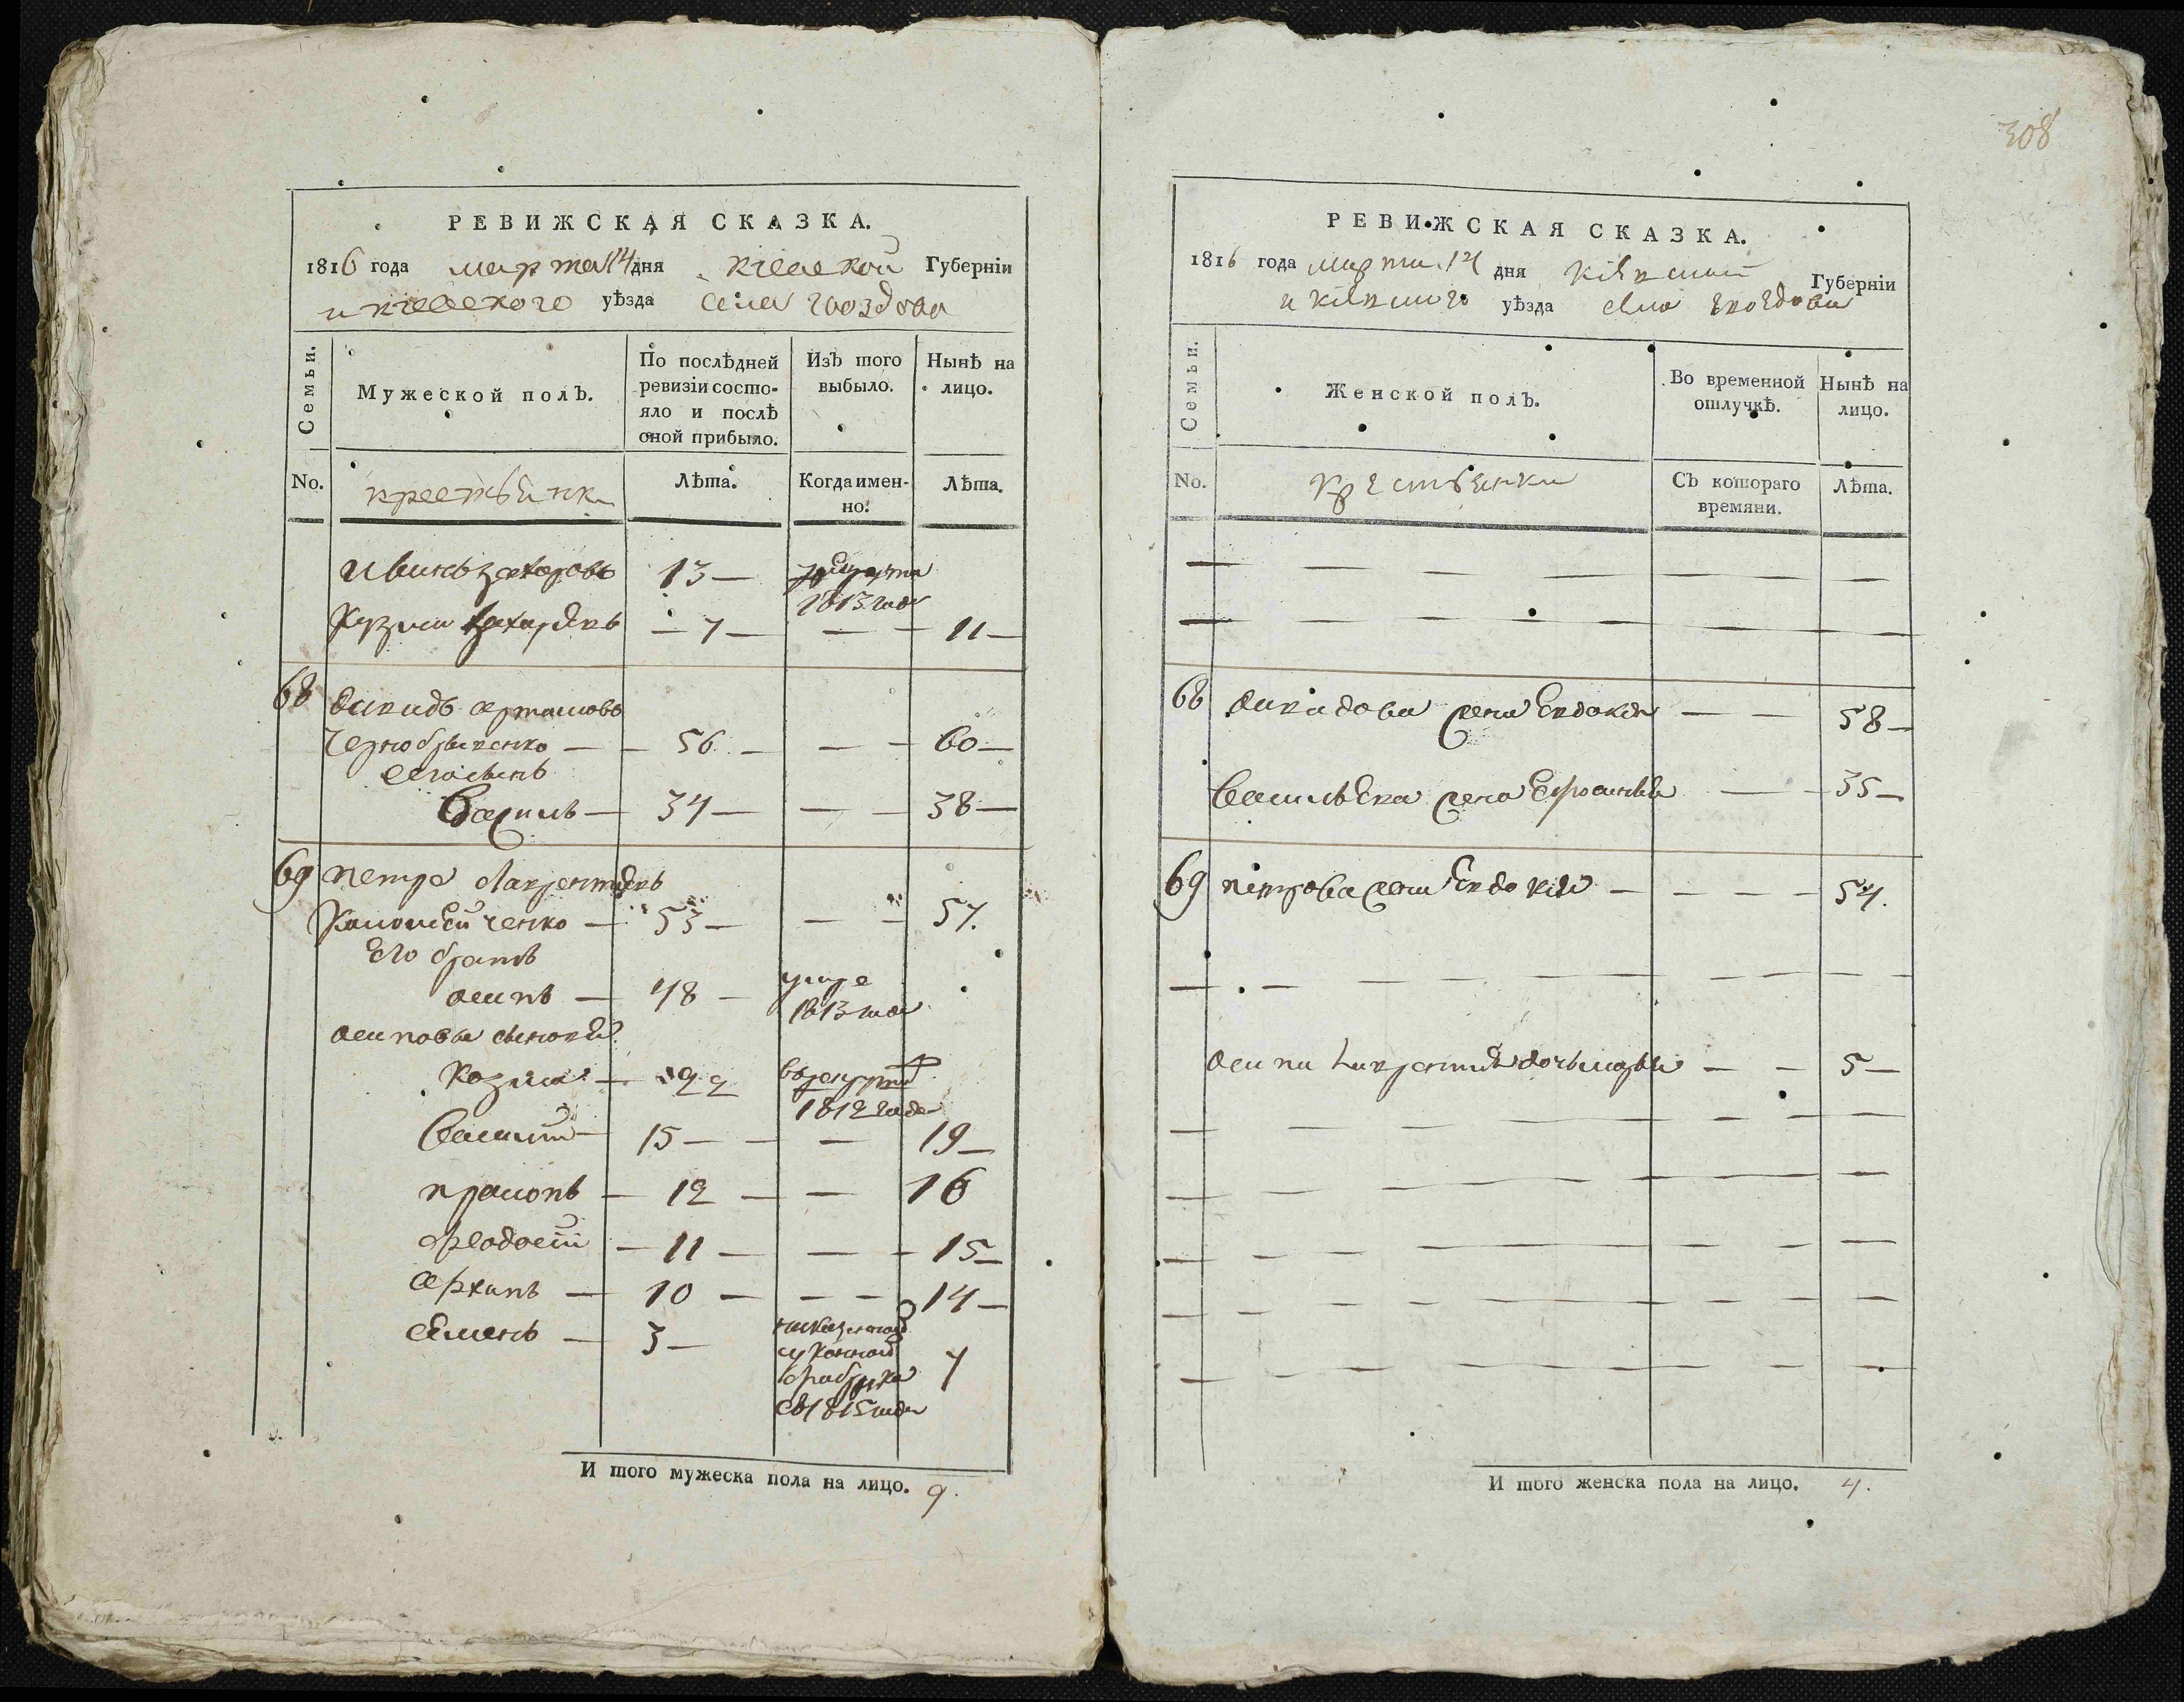 РЕВИЖСКАЯ СКАЗКА.
1816 года марта 14 дня Кіевской Губерніи
и Кіевского уѣзда села Гвоздова
Семьи.
Мужеской полъ.
По послѣдней ревизіи состояло и послѣ оной прибыло.
Изъ того выбыло.
Нынѣ на лицо.
No.
Лѣта.
Когда именно.
Лѣта.
Иванъ Захаровъ 13 —
1813 года
Кузма Захаревъ — 7 — — — 11 —
68 Давидъ Артемовъ
Чернобривенко — — 56 — — — 60 —
его сынъ
Василь — 34 — — — 38 —
69 Петро Лаврентіевъ
— 53 — — — 57.
Его братъ
Осипъ — 48 — умре
1813 года
Осиповы сыновя
Козма — 22 в рекруты
1812 года
Василій — 15 — — — 19 —
Прокопъ — 12 — — 16
Феодосій — 11 — — — 15 —
Архипъ — 10 — — — 14 —
Семенъ — 3 — на казенной
суконной
фабрике 7
съ 1815 года
И того мужеска пола на лицо. 9.
308
РЕВИЖСКАЯ СКАЗКА.
1816 года марта 14 дня Кіевской Губерніи
и Кіевского уѣзда села Гвоздова
Семьи.
Женской полъ.
Во временной отлучкѣ.
Нынѣ на лицо.
No.
Крестьянки
Съ котораго времяни.
Лѣта.
68 Давидова жена Евдокія — — 58 —
Васильева жена Ефросинія — — 35 —
69 Петрова жена Евдокія — — — — 54.
Осипа Лаврентіева дочь Марія — — 5 —
И того женска пола на лицо. 4.